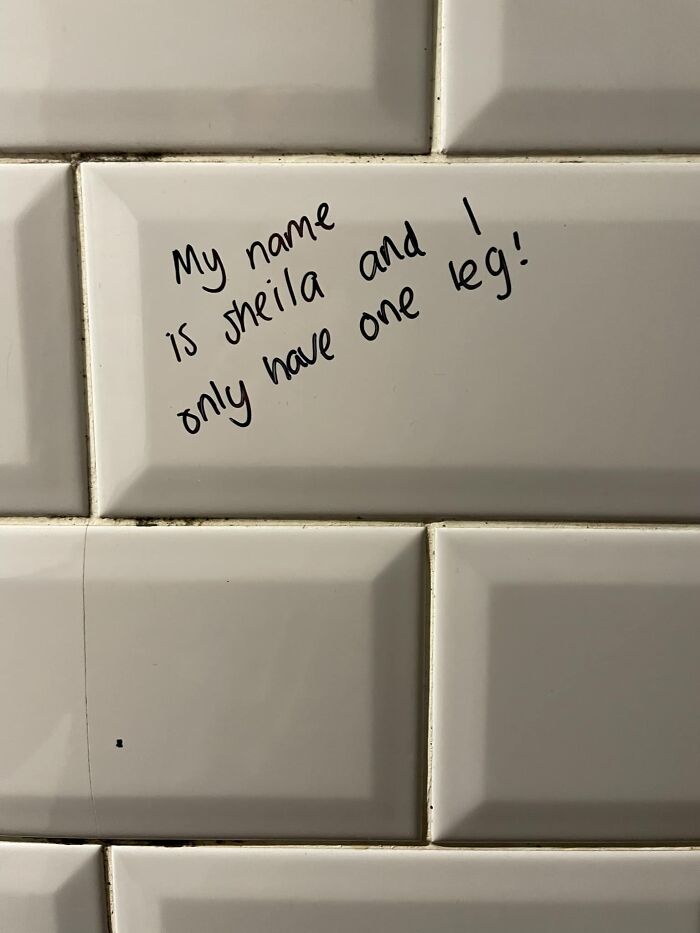 My name
is sheila and I
only have one leg!